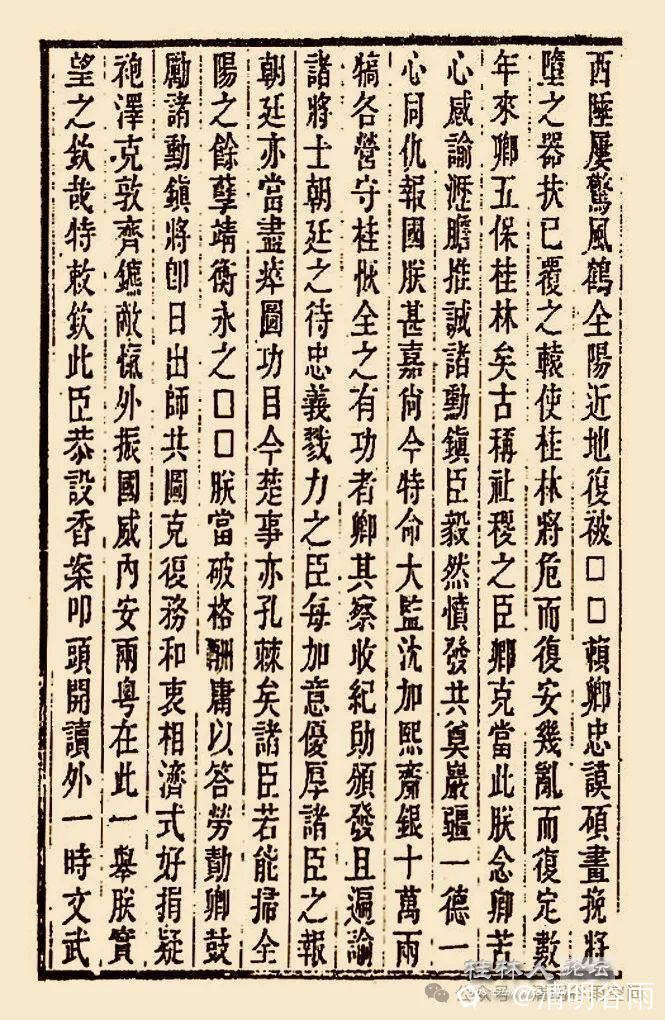 西陲屢驚風鶴全陽近地復被□□賴卿忠謨碩畫挽將
墮之器扶已覆之轅使桂林將危而復安幾亂而復定數
年來卿五保桂林矣古稱社稷之臣卿克當此朕念卿苦
心感諭瀝膽推誠諸勳鎮臣毅然憤發共奠巖疆一德一
心同仇報國朕甚嘉尚今特命大監沈加熙齎銀十萬兩
犒各營守桂恢全之有功者卿其察收紀勛頒發且遍諭
諸將士朝廷之待忠義戮力之臣每加意優厚諸臣之報
朝廷亦當盡瘁圖功目今楚事亦孔棘矣諸臣若能掃全
陽之餘孽靖衡永之□□朕當破格酬庸以答勞勩卿鼓
勵諸勳鎮將卽日出師共圖克復務和衷相濟式好捐疑
袍澤克敦齊鑣敵愾外振國威內安兩粤在此一舉朕實
望之欽哉特敕欽此臣恭設香案叩頭開讀外一時文武
桂林人论坛
公众号
@清明谷雨